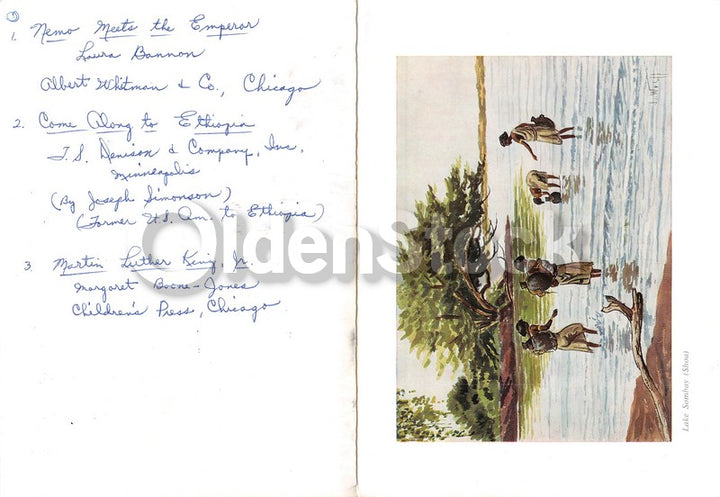 ③
1. Nemo Meets the Emperor
Laura Bannon
Albert Whitman & Co., Chicago
2. Come Along to Ethiopia
T. S. Denison & Company, Inc,
Minneapolis
(By Joseph Simonson)
(Former U.S. Am. to Ethiopia)
3. Martin Luther King, Jr.
Margaret Boone-Jones
Children's Press, Chicago
OldenStock
Lake Sombay (Shoa)